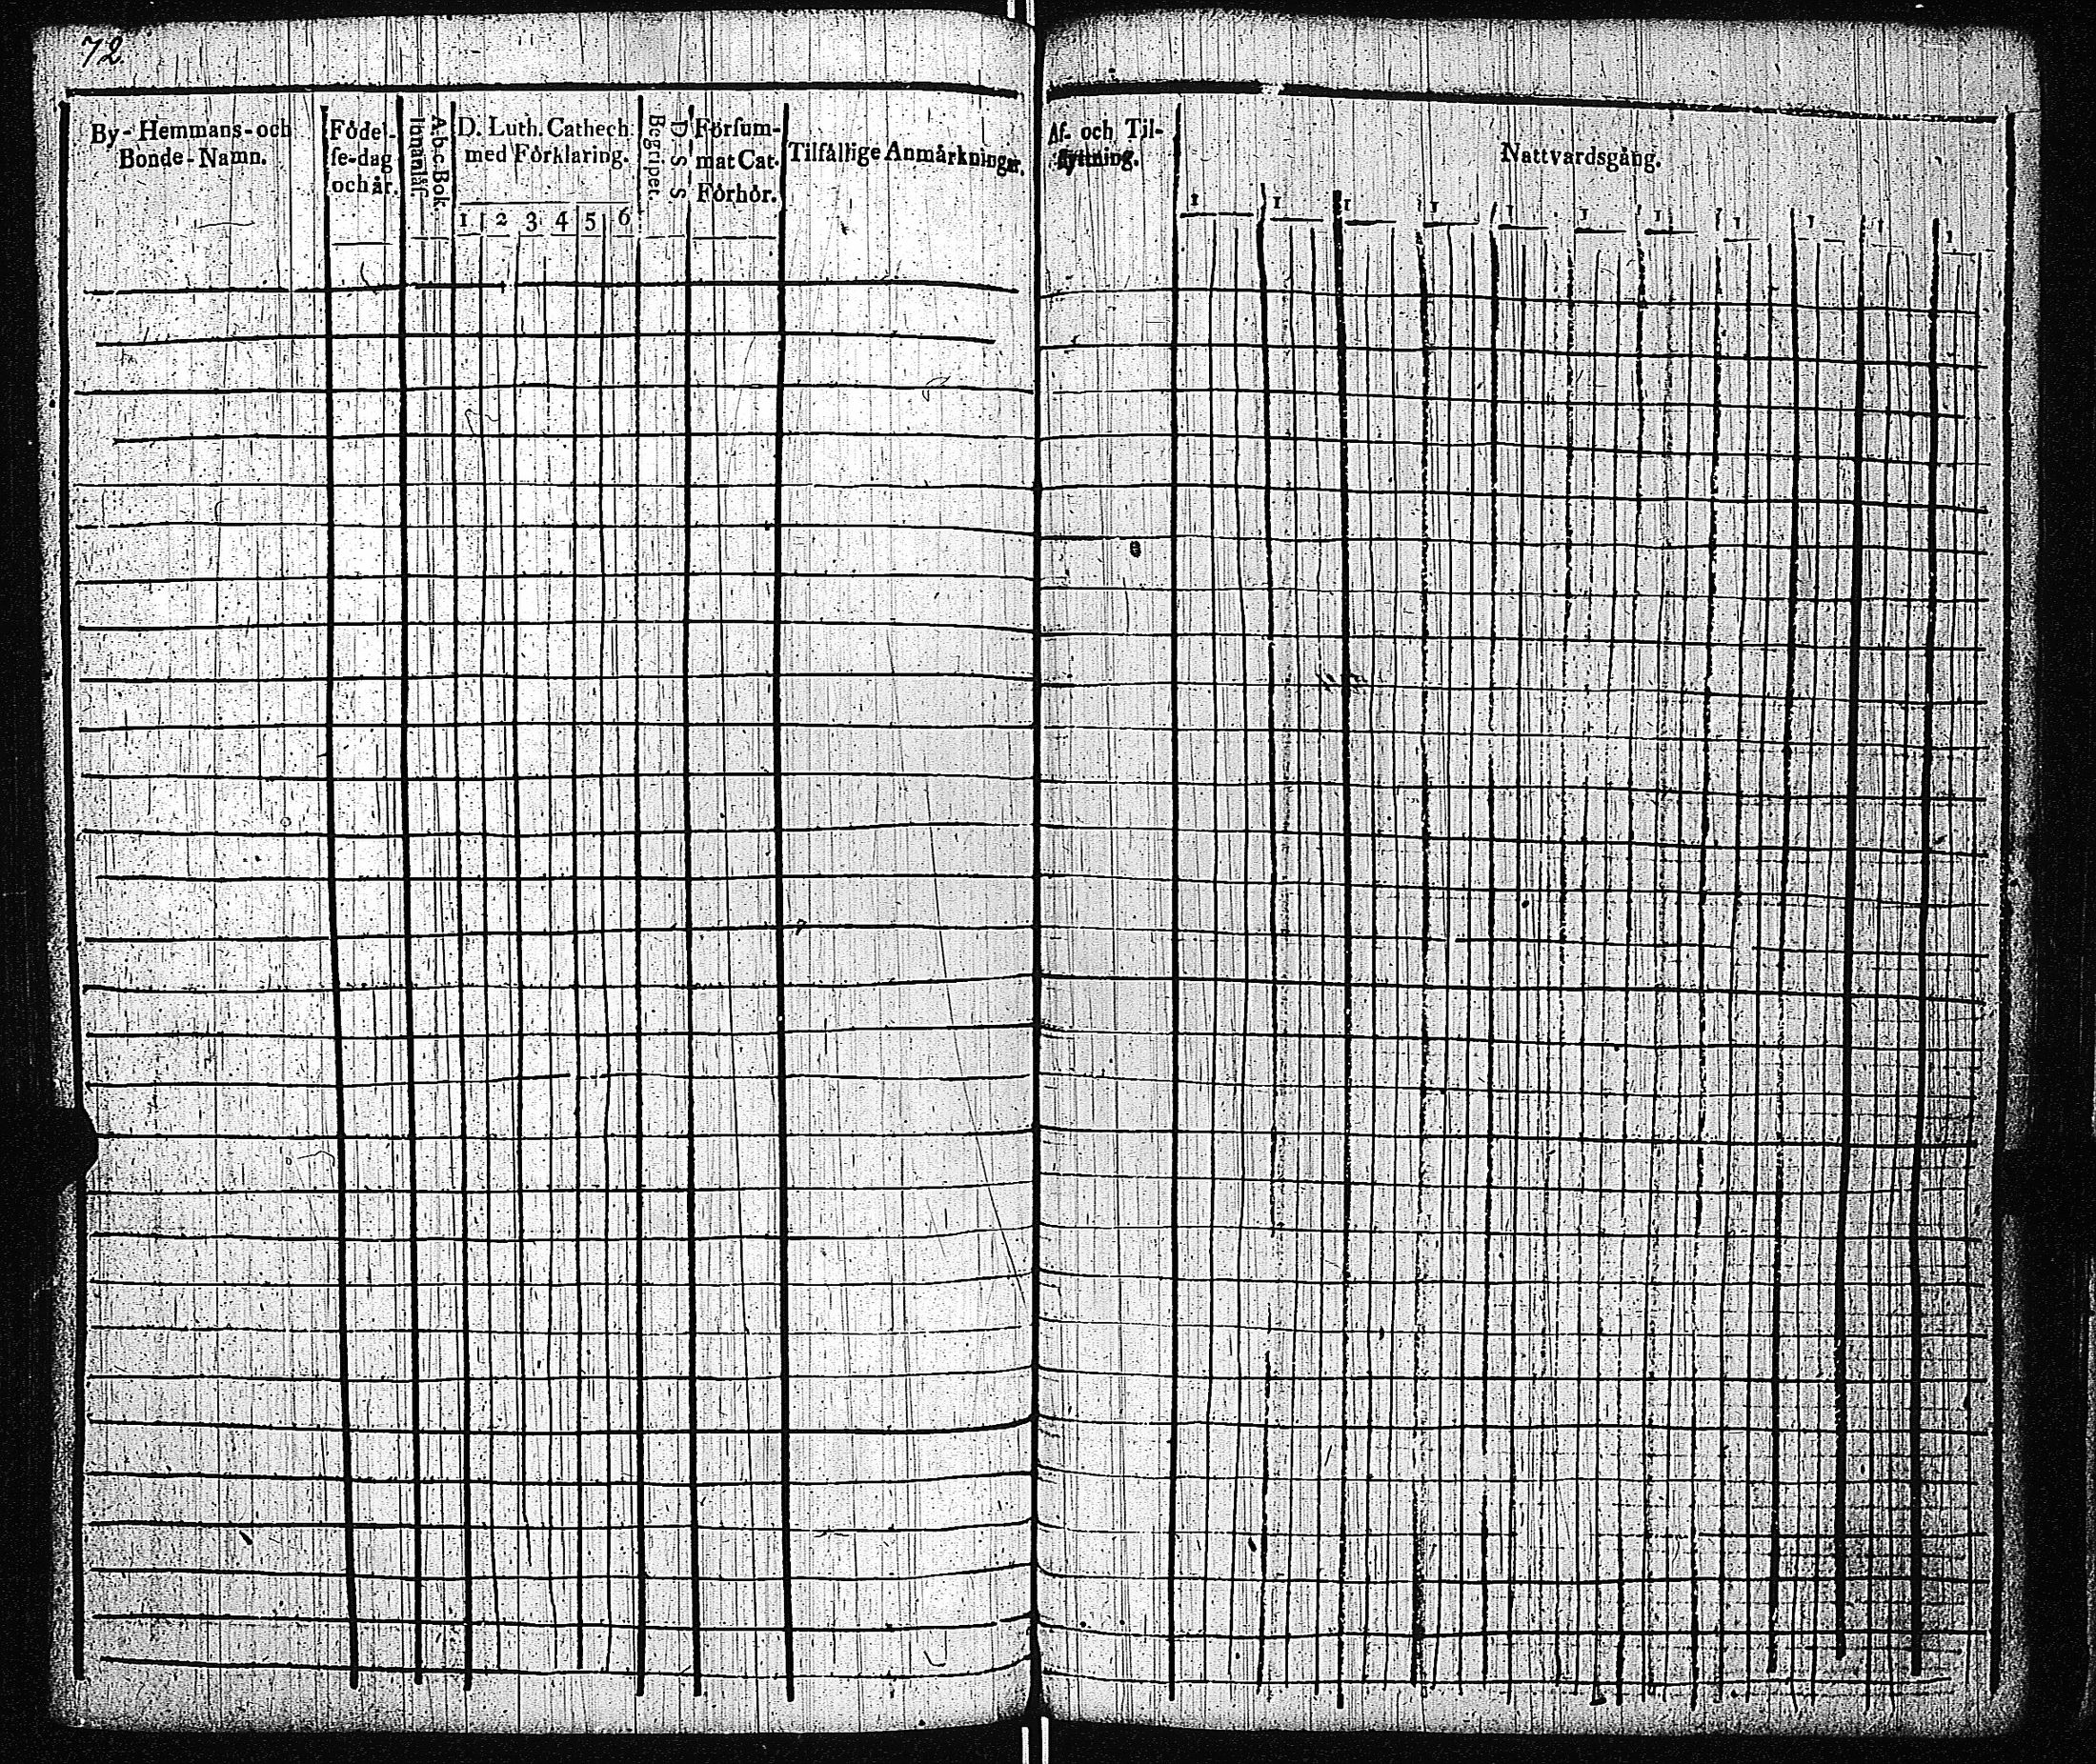 72
By-Hemmans-och
Bonde-Namn.
Födel-
se-dag
och år.
A-b-c-Bok.
Innanläs.
D. Luth. Cathech.
med Förklaring.
1 2 3 4 5 6
D-S-S
Begripet.
Försum-
mat Cat.
Förhör.
Tilfällige Anmärkningar.
Af- och Til-
flyttning.
Nattvardsgång.
1 1 1 1 1 1 1 1 1 1 1